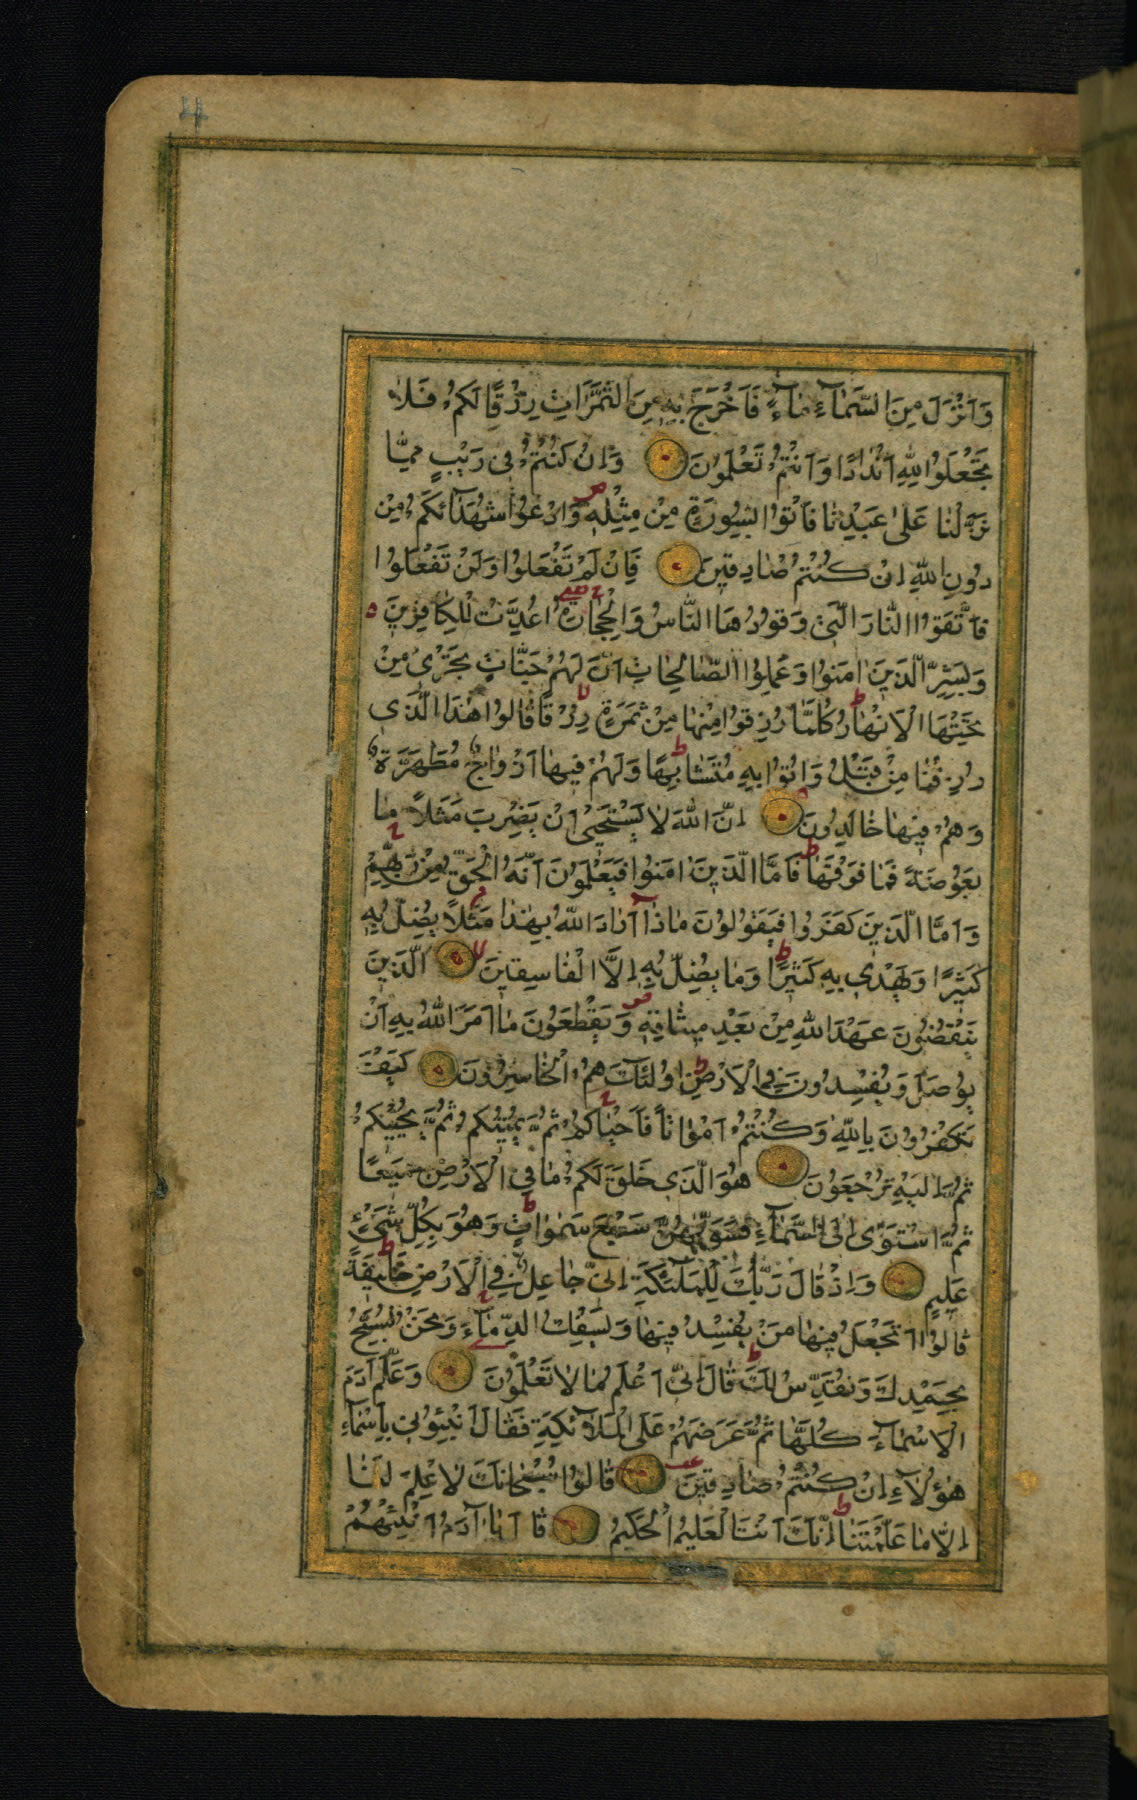 4
وَاَنْزَلَ مِنَ السَّمَآءِ مَآءً فَاَخْرَجَ بِهِ مِنَ الثَّمَرَاتِ رِزْقًا لَكُمْ فَلَا
تَجْعَلُوا لِلّٰهِ اَنْدَادًا وَاَنْتُمْ تَعْلَمُونَ وَاِنْ كُنْتُمْ فِى رَيْبٍ مِمَّا
نَزَّلْنَا عَلٰى عَبْدِنَا فَاْتُوا بِسُورَةٍ مِنْ مِثْلِهِ ص وَادْعُوا شُهَدَآئَكُمْ مِنْ
دُونِ اللّٰهِ اِنْ كُنْتُمْ صَادِقِينَ فَاِنْ لَمْ تَفْعَلُوا وَلَنْ تَفْعَلُوا
فَاتَّقُوا النَّارَ الَّتِى وَقُودُهَا النَّاسُ وَالْحِجَارَةُ اُعِدَّتْ لِلْكَافِرِينَ ه
وَبَشِّرِ الَّذِينَ اٰمَنُوا وَعَمِلُوا الصَّالِحَاتِ اَنَّ لَهُمْ جَنَّاتٍ تَجْرِى مِنْ
تَحْتِهَا الْاَنْهَارُ ط كُلَّمَا رُزِقُوا مِنْهَا مِنْ ثَمَرَةٍ رِزْقًا لا قَالُوا هٰذَا الَّذِى
رُزِقْنَا مِنْ قَبْلُ وَاُتُوا بِهِ مُتَشَابِهًا ط وَلَهُمْ فِيهَا اَزْوَاجٌ مُطَهَّرَةٌ
وَهُمْ فِيهَا خَالِدُونَ اِنَّ اللّٰهَ لَا يَسْتَحْيِى اَنْ يَضْرِبَ مَثَلًا مَا
بَعُوضَةً فَمَا فَوْقَهَا ط فَاَمَّا الَّذِينَ اٰمَنُوا فَيَعْلَمُونَ اَنَّهُ الْحَقُّ مِنْ رَبِّهِمْ ج
وَاَمَّا الَّذِينَ كَفَرُوا فَيَقُولُونَ مَاذَا اَرَادَ اللّٰهُ بِهٰذَا مَثَلًا م يُضِلُّ بِهِ
كَثِيرًا وَيَهْدِى بِهِ كَثِيرًا ط وَمَا يُضِلُّ بِهِ اِلَّا الْفَاسِقِينَ لا اَلَّذِينَ
يَنْقُضُونَ عَهْدَ اللّٰهِ مِنْ بَعْدِ مِيثَاقِهِ ص وَيَقْطَعُونَ مَا اَمَرَ اللّٰهُ بِهِ اَنْ
يُوصَلَ وَيُفْسِدُونَ فِى الْاَرْضِ ط اُولٰئِكَ هُمُ الْخَاسِرُونَ كَيْفَ
تَكْفُرُونَ بِاللّٰهِ وَكُنْتُمْ اَمْوَاتًا فَاَحْيَاكُمْ ج ثُمَّ يُمِيتُكُمْ ثُمَّ يُحْيِيكُمْ
ثُمَّ اِلَيْهِ تُرْجَعُونَ هُوَ الَّذِى خَلَقَ لَكُمْ مَا فِى الْاَرْضِ جَمِيعًا
ثُمَّ اسْتَوٰى اِلَى السَّمَآءِ فَسَوّٰيهُنَّ سَبْعَ سَمٰوَاتٍ ط وَهُوَ بِكُلِّ شَىْءٍ
عَلِيمٌ وَاِذْ قَالَ رَبُّكَ لِلْمَلٰٓئِكَةِ اِنِّى جَاعِلٌ فِى الْاَرْضِ خَلِيفَةً ط
قَالُوا اَتَجْعَلُ فِيهَا مَنْ يُفْسِدُ فِيهَا وَيَسْفِكُ الدِّمَآءَ ج وَنَحْنُ نُسَبِّحُ
بِحَمْدِكَ وَنُقَدِّسُ لَكَ ط قَالَ اِنِّى اَعْلَمُ مَا لَا تَعْلَمُونَ وَعَلَّمَ اٰدَمَ
الْاَسْمَآءَ كُلَّهَا ثُمَّ عَرَضَهُمْ عَلَى الْمَلَآئِكَةِ فَقَالَ اَنْبِئُونِى بِاَسْمَآءِ
هٰؤُلَآءِ اِنْ كُنْتُمْ صَادِقِينَ قَالُوا سُبْحَانَكَ لَا عِلْمَ لَنَا
اِلَّا مَا عَلَّمْتَنَا ط اِنَّكَ اَنْتَ الْعَلِيمُ الْحَكِيمُ قَا يَا اٰدَمُ اَنْبِئْهُمْ